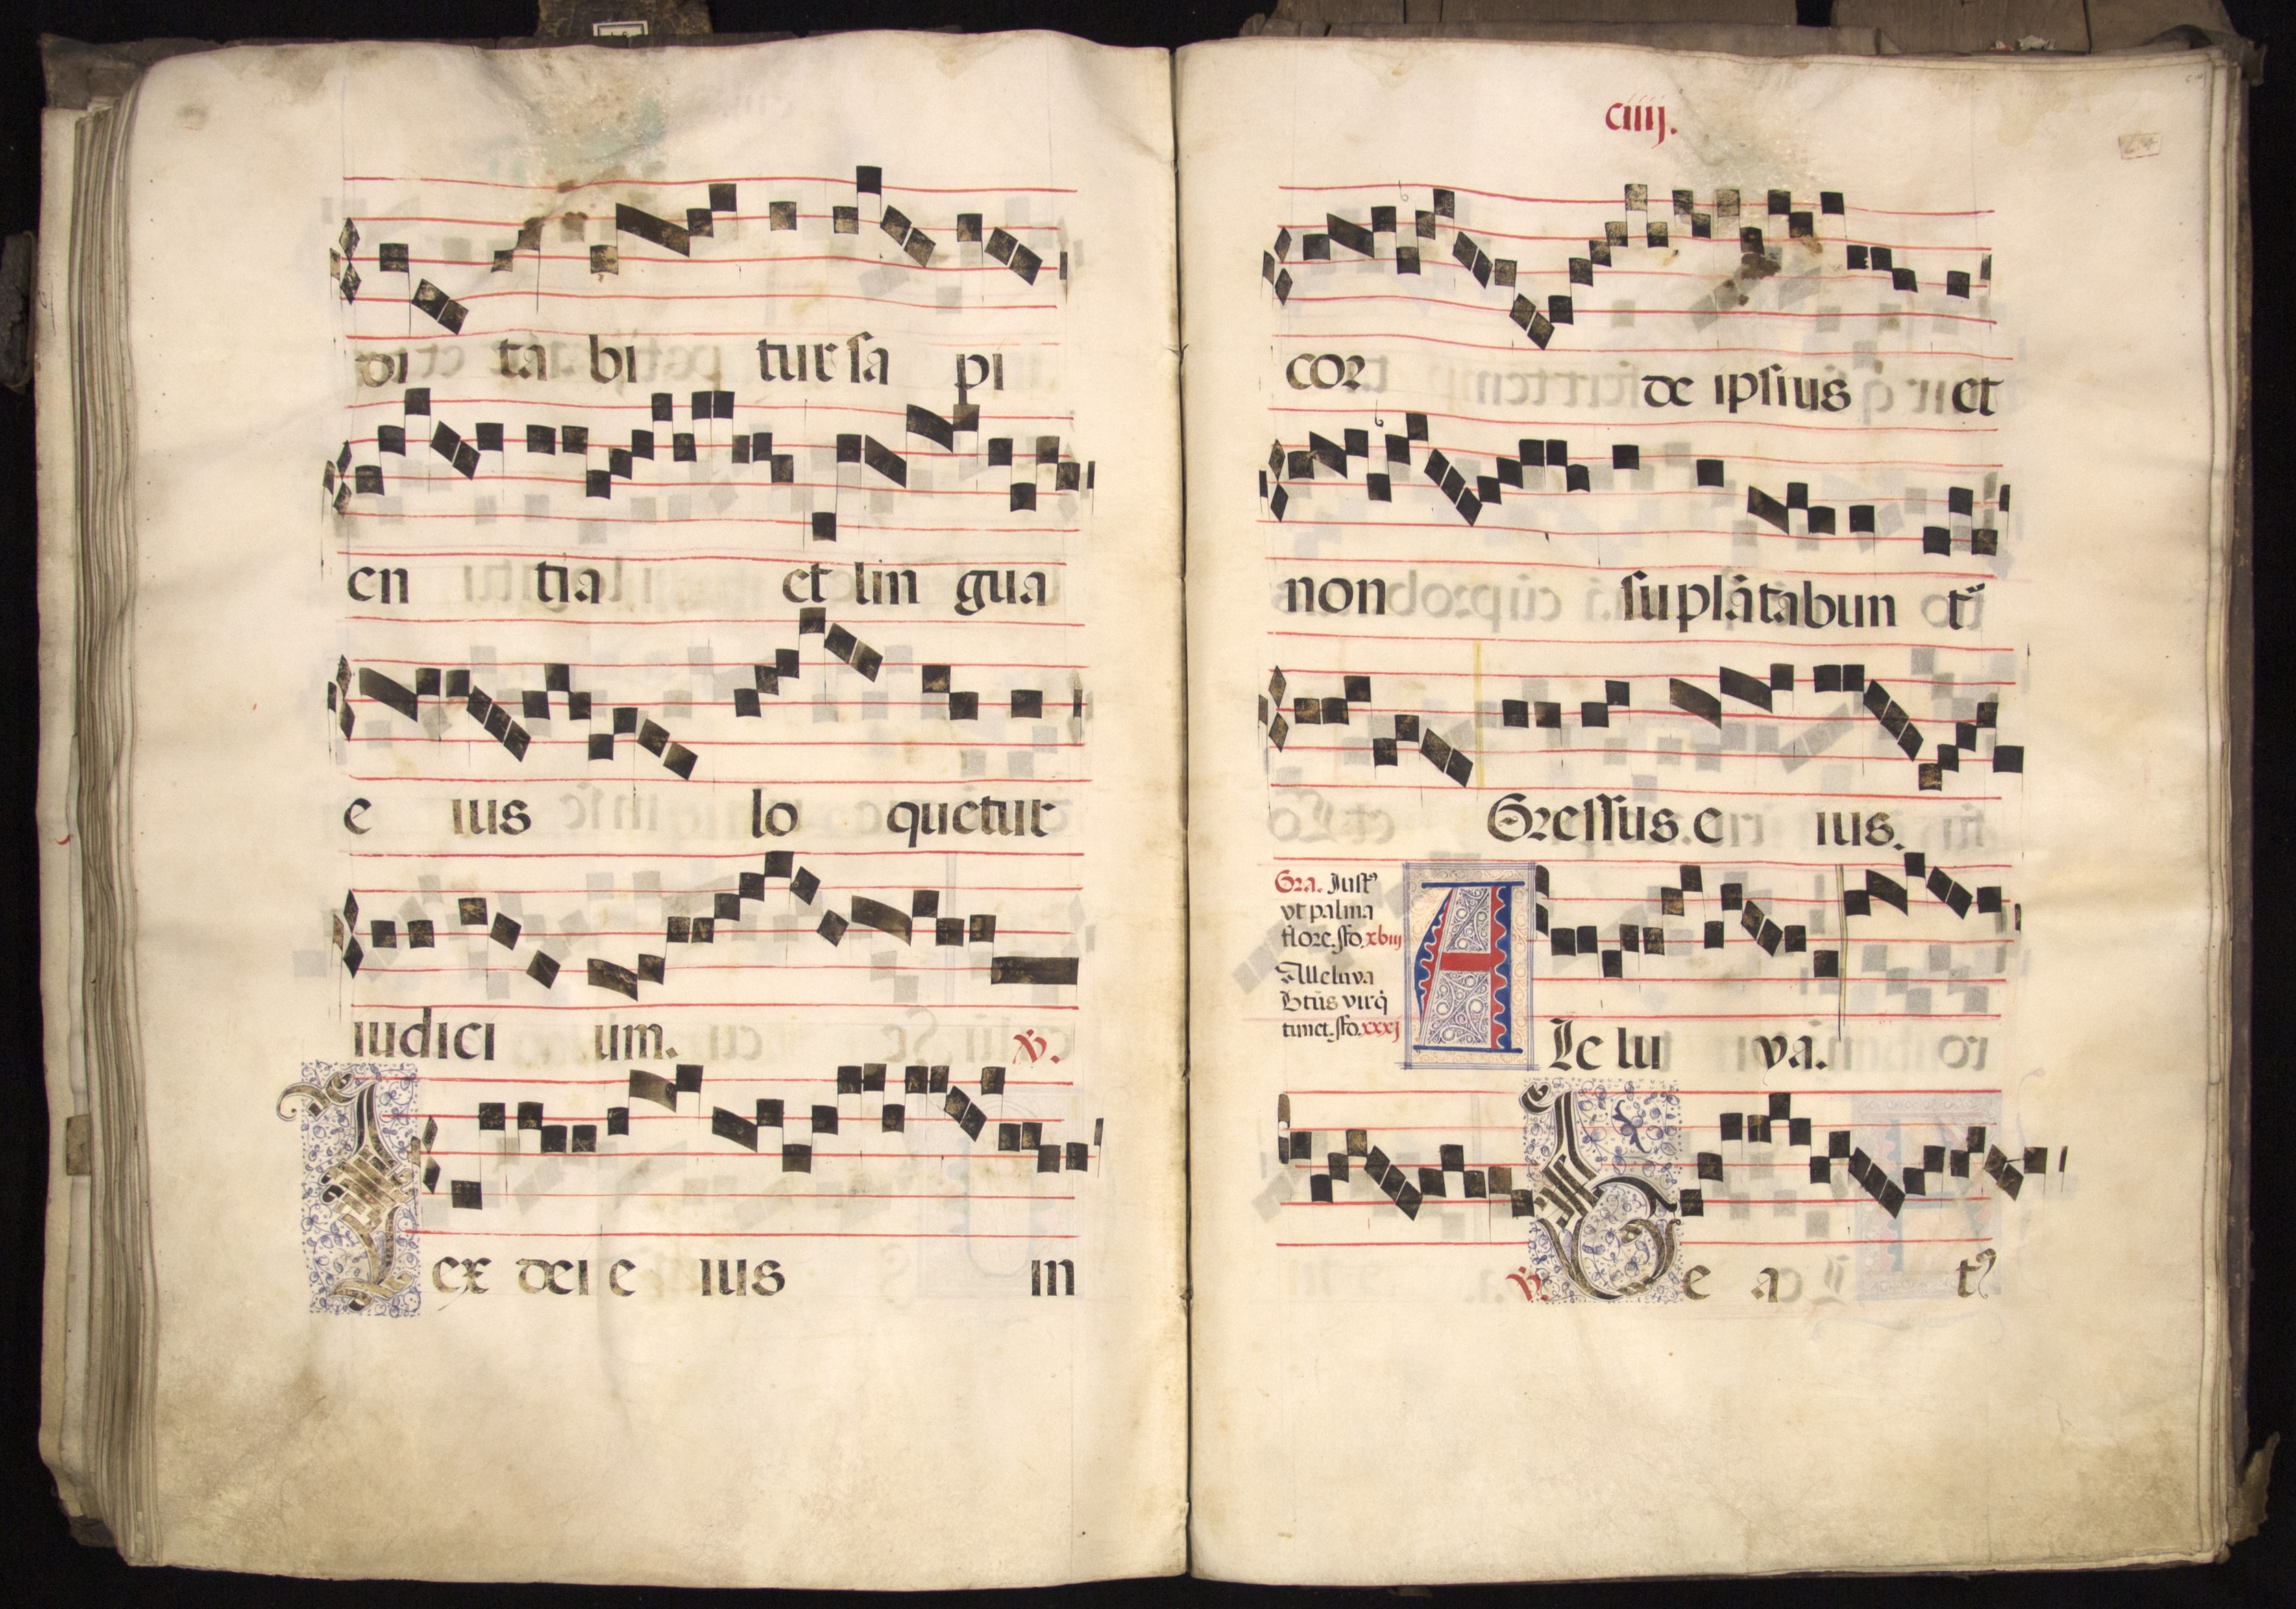 di ta bi tur sa pi
en tia et lin gua
e ius lo quetur
iudici um. ℣.
Lex dei e ius in
ciiij.
cor de ipsius et
non suplātabun t᷒
Gressus e ius.
Gra. Iustꝰ
vt palma
flore. fo. xbiij
Alleluya
Btūs vir q̇
timet. fo. xxxj
A Le lu ya.
℣. Be a tꝰ